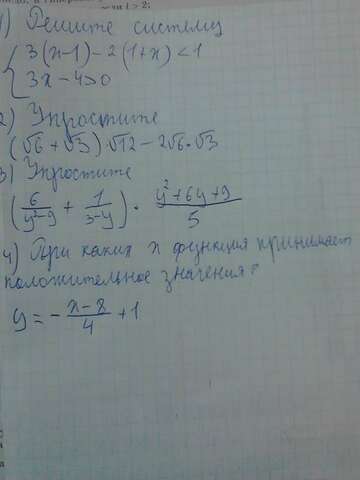 1) Решите систему
{ 3(x-1)-2(1+x)<1
3x-4>0
2) Упростите
(√6+√3)√12-2√6·√3
3) Упростите
(6/(y²-9) + 1/(3-y)) · (y²+6y+9)/5
4) При каких x функция принимает
положительное значения?
y = - (x-8)/4 + 1